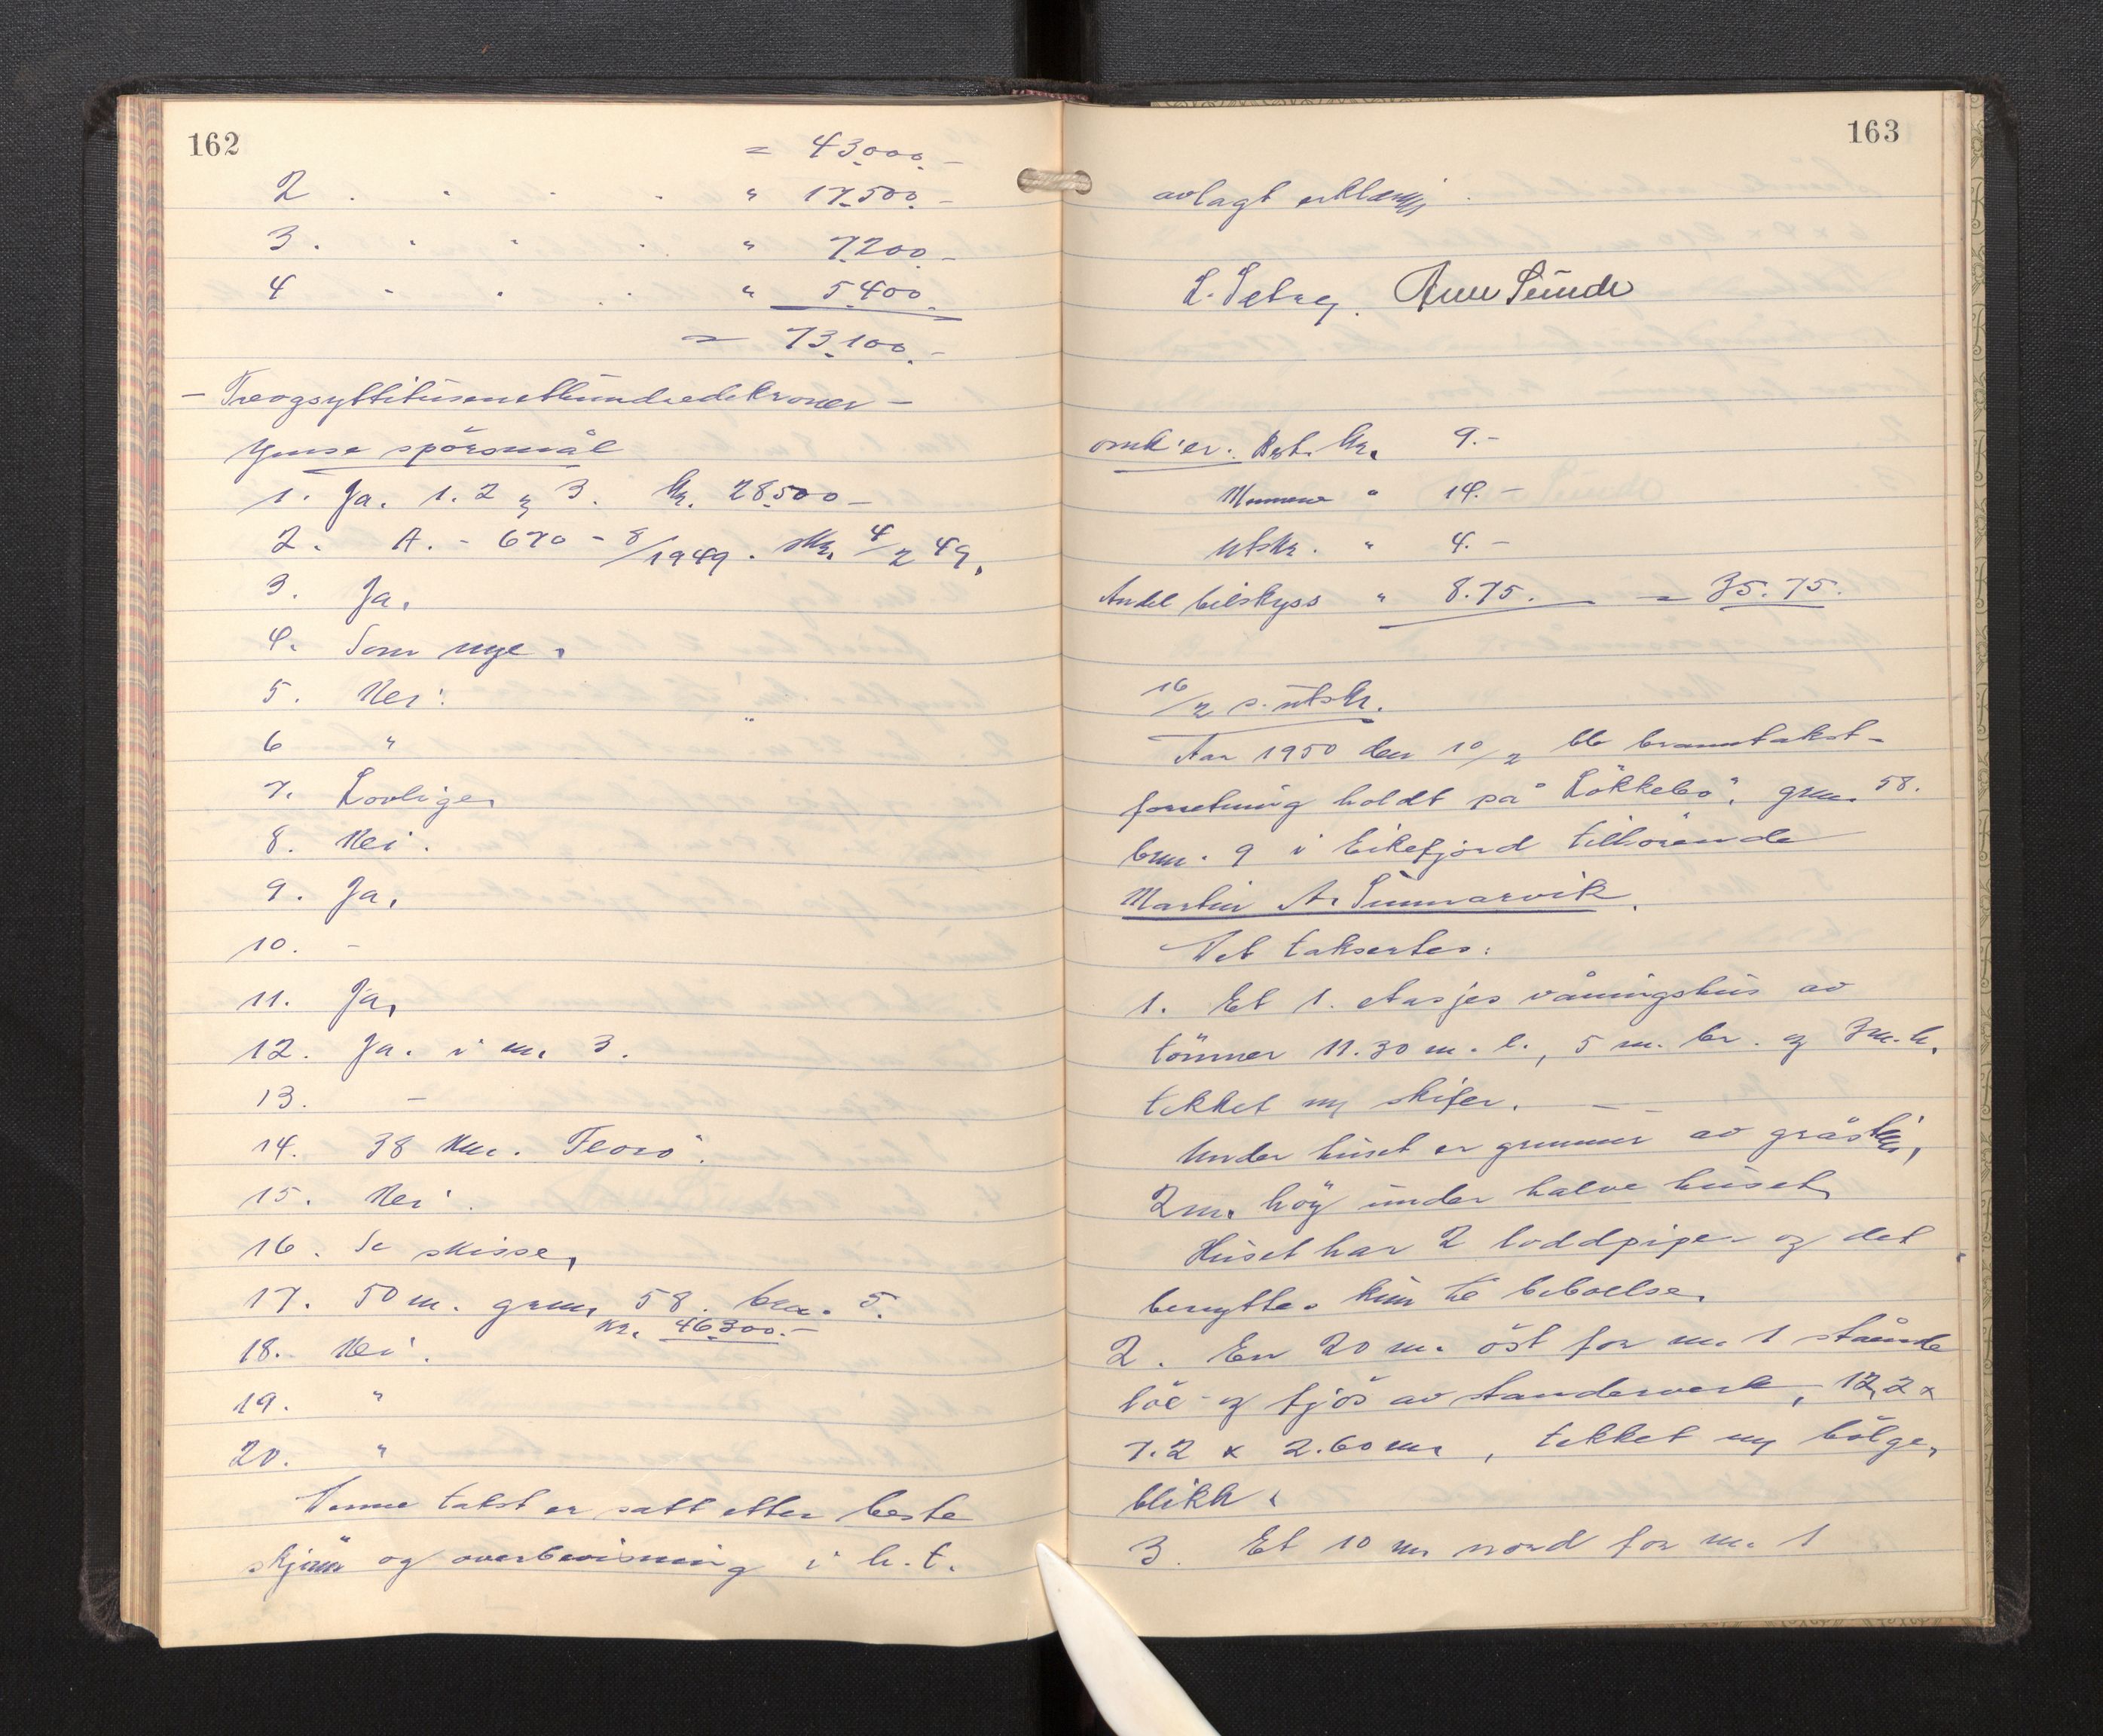 162
= 43.000.-
2 . " . . " 17.500.-
3 . " " . " 7.200.-
4 " . . " 5.400.
= 73.100.-
- Treogsyttitusenethundredekroner -
Ymse spörsmål
1. Ja. 1. 2 og 3. kr. 28.500-
2. A. - 670 - 8/1949. skr. 4/2 49.
3. Ja.
4. Som nye.
5. Nei.
6 "
7. Lovlige.
8. Nei.
9. Ja.
10. -
11. Ja.
12. Ja. i m. 3.
13. -
14. 38 km. Florö.
15. Nei.
16. Se skisse.
17. 50 m. grnr. 58. bnr. 5.
kr. 46.300.-
18. Nei.
19. "
20. "
Denne takst er satt etter beste
skjönn og overbevisning i h. t.
163
avlagt erklæring.
L. Sunde
omk'er. kr. 9.-
" 14.-
Utskr. " 4.-
Andel bilskyss " 8.75. = 35.75.
16/2 s. utskr.
Aar 1950 den 10/2 ble branntakst-
forretning holdt på "Lökkebö", grnr. 58.
bnr. 9 i Eikefjord tilhörende
Martin A. Sunnarvik.
Det taksertes:
1. Et 1. etasjes våningshus av
tömmer 11.30 m. l., 5 m. br. og 3 m. h.
tekket m/ skifer. - -
Under huset er grunnmur av gråstein,
2 m. höy under halve huset.
Huset har 2 loddpiper og det
benyttes kun til beboelse.
2. En 20 m. öst for m. 1 stående
löe- og fjös av standerverk, 12,2 x
7.2 x 2.60 m., tekket m/ bölge-
blikk.
3. Et 10 m. nord for m. 1